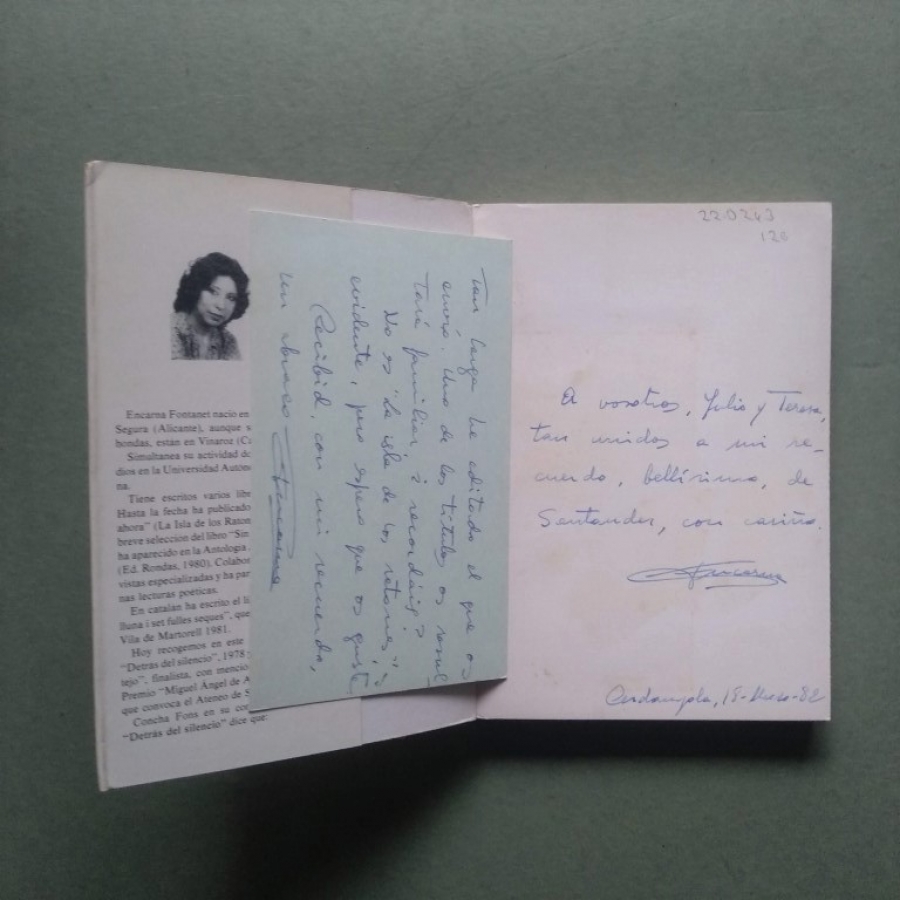 Encarna Fontanet nació en
Segura (Alicante), aunque s
hondas, están en Vinaroz (Ca
Simultanea su actividad do
dios en la Universidad Autóno
na.
Tiene escritos varios libr
Hasta la fecha ha publicado
ahora" (La Isla de los Raton
breve selección del libro "Sin
ha aparecido en la Antología
(Ed. Rondas, 1980). Colabor
vistas especializadas y ha par
nas lecturas poéticas.
En catalán ha escrito el li
lluna i set fulles seques", que
Vila de Martorell 1981.
Hoy recogemos en este
"Detrás del silencio", 1978 y
tejo", finalista, con menció
Premio "Miguel Ángel de A
que convoca el Ateneo de S
Concha Fons en su co
"Detrás del silencio" dice que:
Tan luego he editado el que os
envío. Uno de los títulos os resul
tará familiar ¿recordáis?
No es "La isla de los ratones",
evidente, pero espero que os guste.
Recibid, con mi recuerdo,
un abrazo
Encarna
220243
12€
A vosotros, Julio y Teresa,
tan unidos a mi re-
cuerdo, bellísimo, de
Santander, con cariño.
Encarna
Cerdanyola, 15-Marzo-82